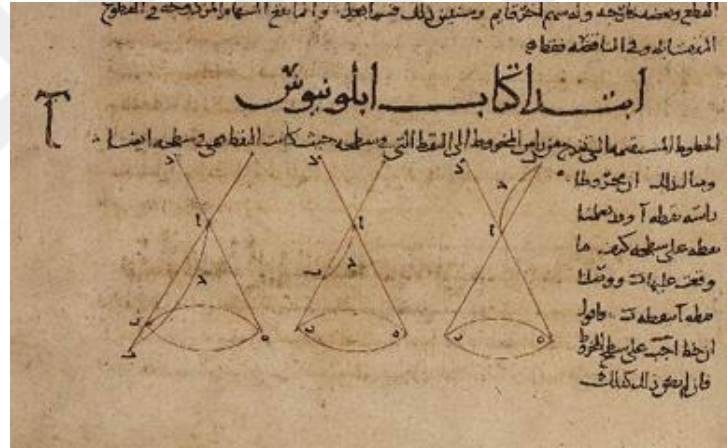 القطع وبعضه خارجه وله سهم اخر قايم وسنبين ذلك فيما بعد وانما تقع السهام المزدوجة في القطوع
المتقابله وفي الناقصه فقط
ابتدا كتاب ابلونيوس
آ
الخطوط المستقيمه التي تخرج من راس المخروط الى النقط التي في سطحه حيث كانت النقط فهي في سطحه ايضا
مثال ذلك ان مخروطا
راسه نقطه آ وقد تعلمنا
نقطه على سطحه كيف ما
وقعت عليها ب ووصلنا
نقطه آ بنقطه ب فاقول
ان خط اجب على سطح المخروط
فان لم يكن ذلك كذلك
د
د
د
ا
ا
ا
ج
ج
ج
ب
ب
ب
ه
ه
ه